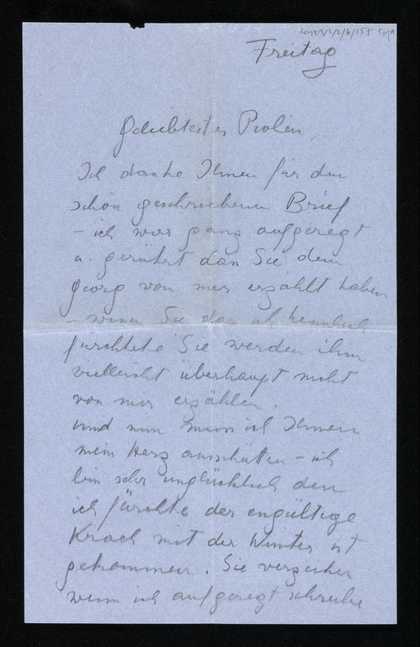 Freitag
Geliebtester
Ich danke Ihnen für den
schön geschriebenen Brief
– ich war ganz aufgeregt
u. gerührt dan Sie dem
Georg von mir erzählt haben
Sie
fürchtete Sie werden ihm
vielleicht überhaupt nicht
von mir erzählen.
und nun muss ich Ihnen
mein Herz ausschütten – ich
bin sehr unglücklich denn
ich fürchte der engültige
Krach mit der Winter ist
gekommen. Sie verzeihen
wenn ich aufgeregt schreibe